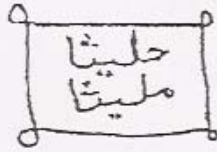 حليثا
مليثا